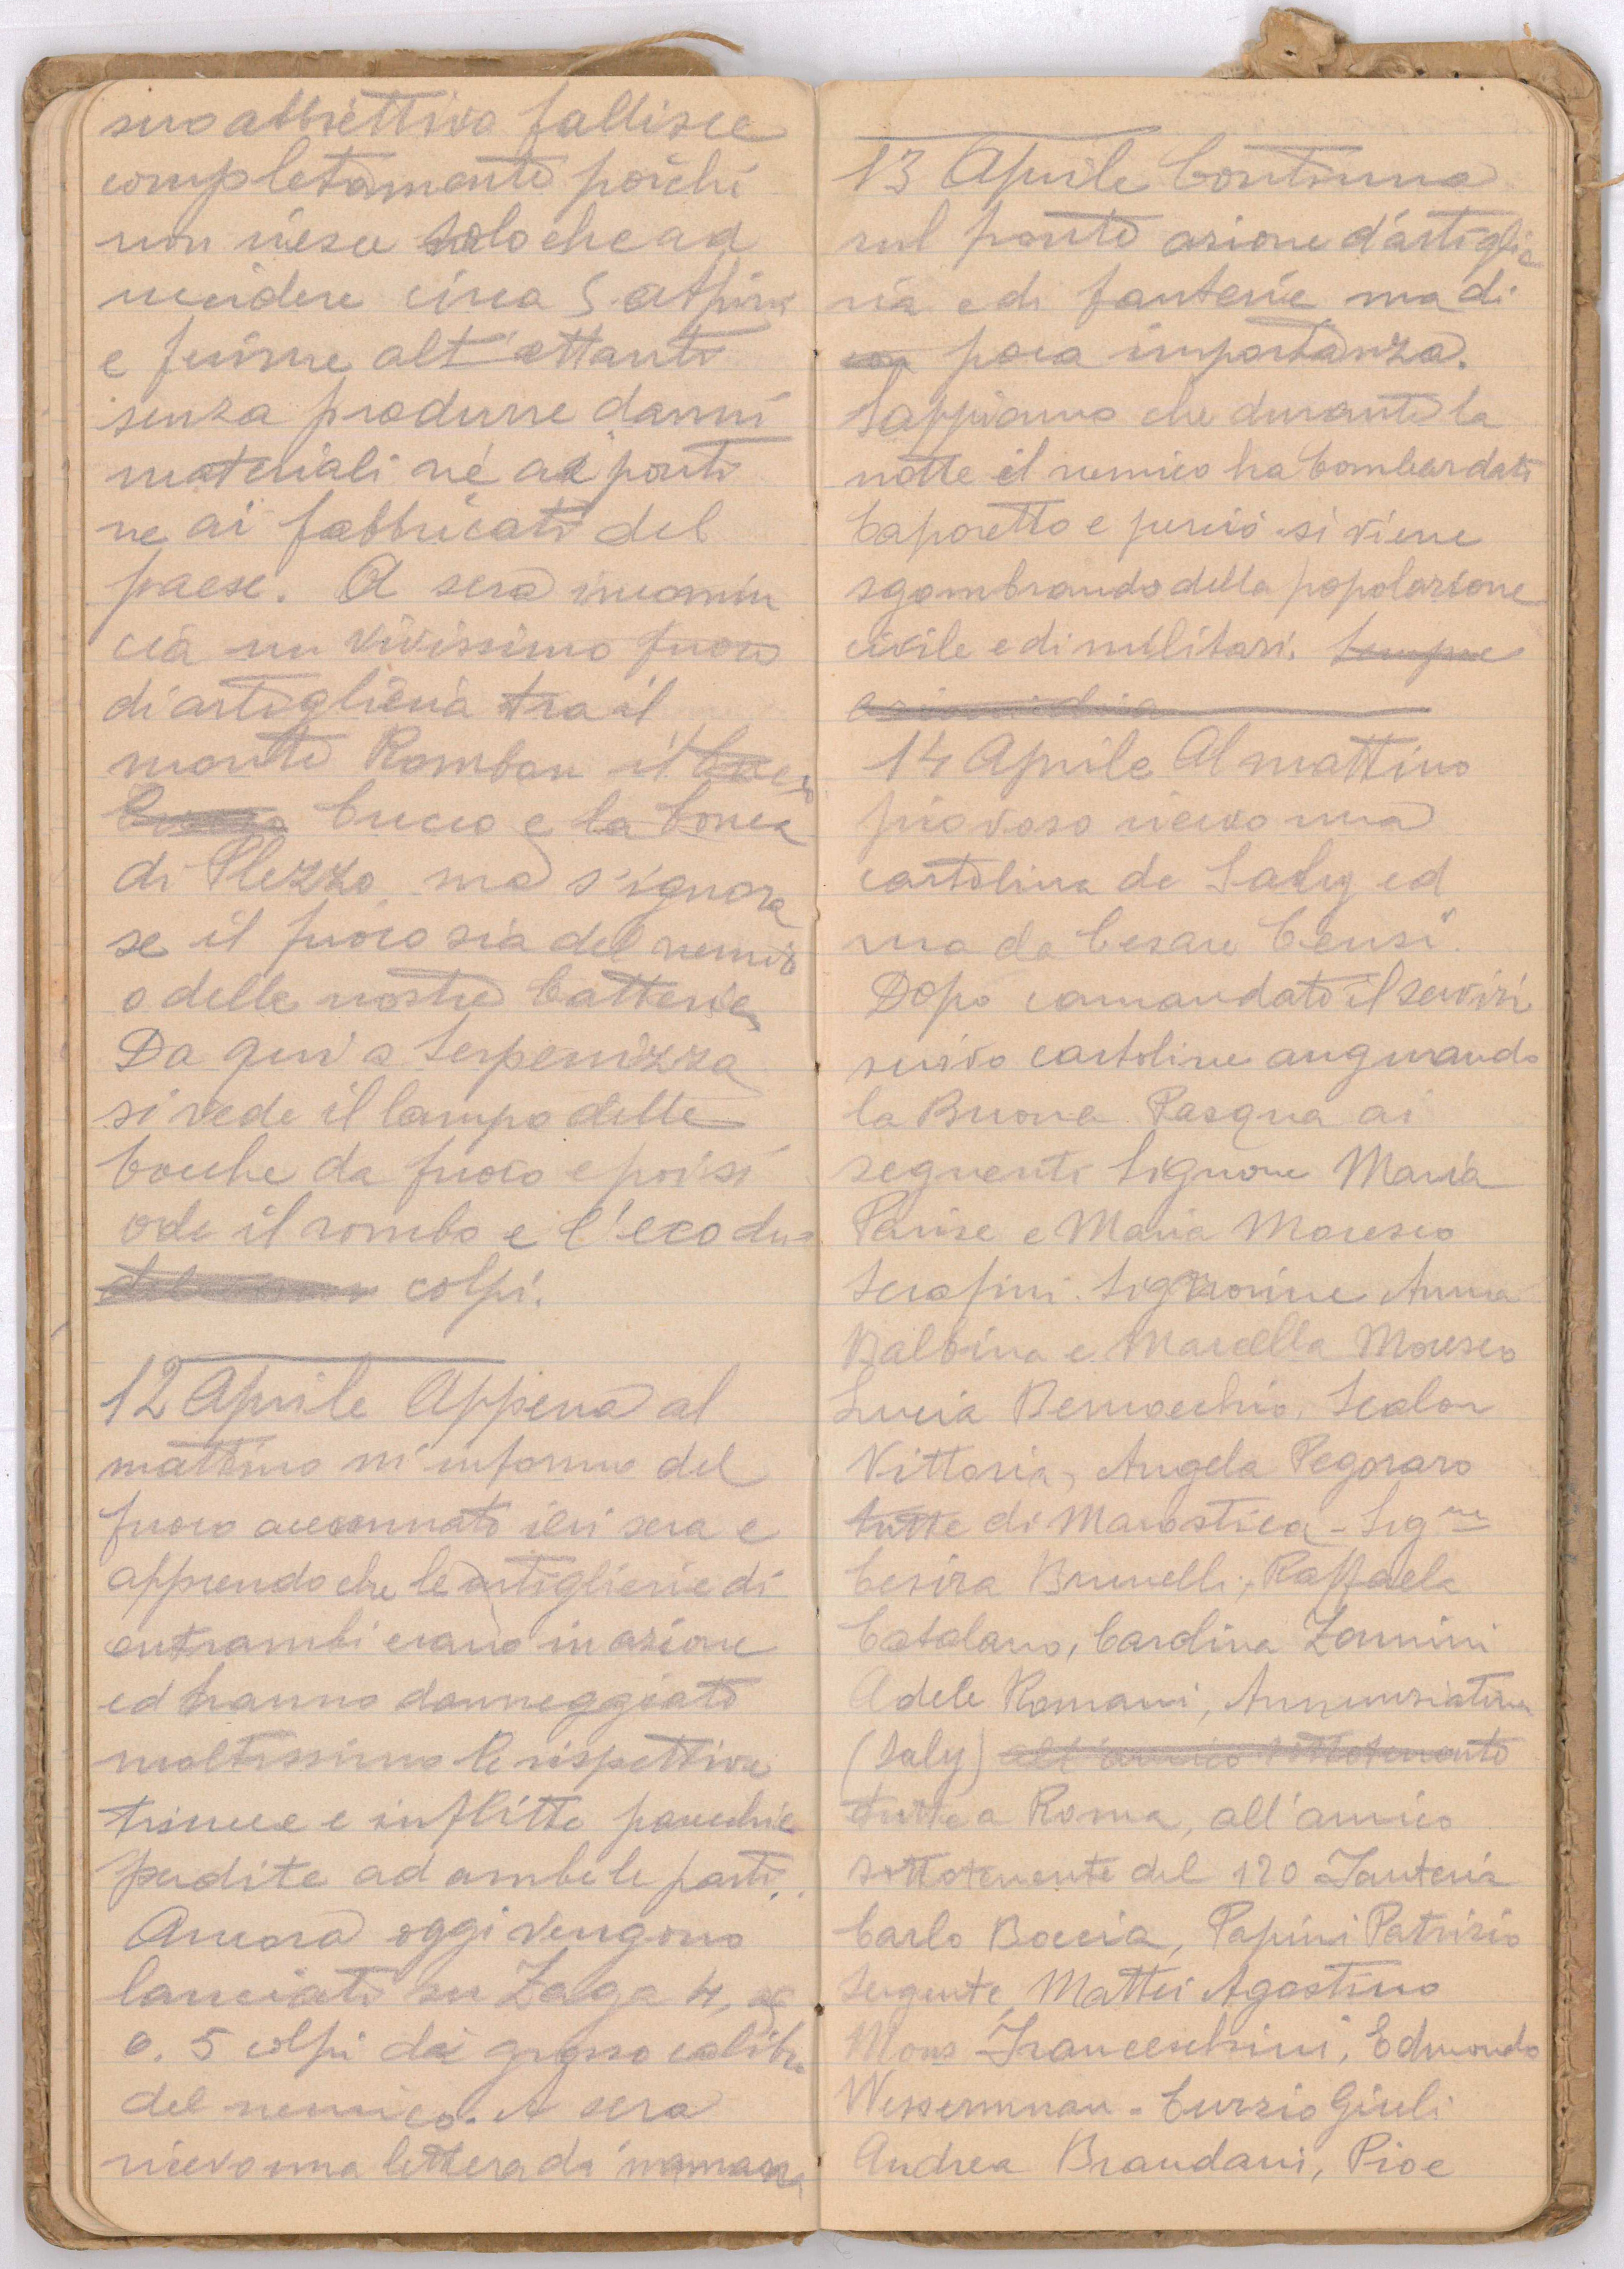 suo abbiettivo fallisce
completamente poichè
non riesce solo che ad
uccidere circa 5 alpini
e ferirne alt'ottanti
senza produrre danni
materiali nè ai ponti
ne ai fabbricati del
paese. A sera incomin
cia un vivissimo fuoco
di artiglieria tra il
monte Rombon il
Cucco e la Conca
di Plezzo, ma s'ignora
se il fuoco sia del nemico
o delle nostre batterie,
Da qui a Serpenizza
si vede il lampo delle
bocche da fuoco e poi si
ode il rombo e l'eco dei
colpi.
12 Aprile Appena al
mattino m'informo del
fuoco accennato ieri sera e
apprendo che le artiglierie di
entrambi erano in azione
ed hanno danneggiato
moltissimo le rispettive
trincee e inflitte parecchie
perdite ad ambe le parti.
Ancora oggi vengono
lanciati su Zaga 4,
o. 5 colpi da grosso calibro
del nemico. A sera
ricevo una lettera da mamma
13 Aprile Continua
sul fronte azione d'artiglie
ria e di fanterie ma di
con poca importanza.
Sappiamo che durante la
notte il nemico ha bombardato
Caporetto e perciò si viene
sgombrando della popolazione
civile e di militari. Sempre
14 Aprile Al mattino
piovoso ricevo una
cartolina de Saly ed
una da Cesare Censi.
Dopo comandato il servizi
scrivo cartoline augurando
la Buona Pasqua ai
seguenti Signore Maria
Parise e Maria Moresco
Serafini. Signorine Anna
Balbina e Marcella Moresco
Lucia Bernocchio, Scalon
Vittoria, Angela Pegoraro
tutte di Marostica - Sig.ne
Cesira Brunelli, Raffaela
Catalano, Carolina Zannini
Adele Romani, Annunziatina
(Saly) all'amico sottotenente
tutte a Roma, all'amico
sottotenente del 120 Fanteria
Carlo Boccia, Papini Patrizio
Sergente, Mattei Agostino
Mons Franceschini, Edmondo
Wessermman - Curzio Giuli
Andrea Brandani, Pio e